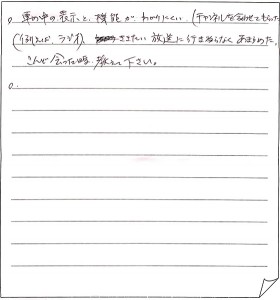 o 車の中の表示と、機能が わかりにくい (チャンネルをあわせてもらった
(例えば、ラジオ) ききたい放送に行きあたらなく あきらめた。
こんど会った時、教えて下さい。
o.